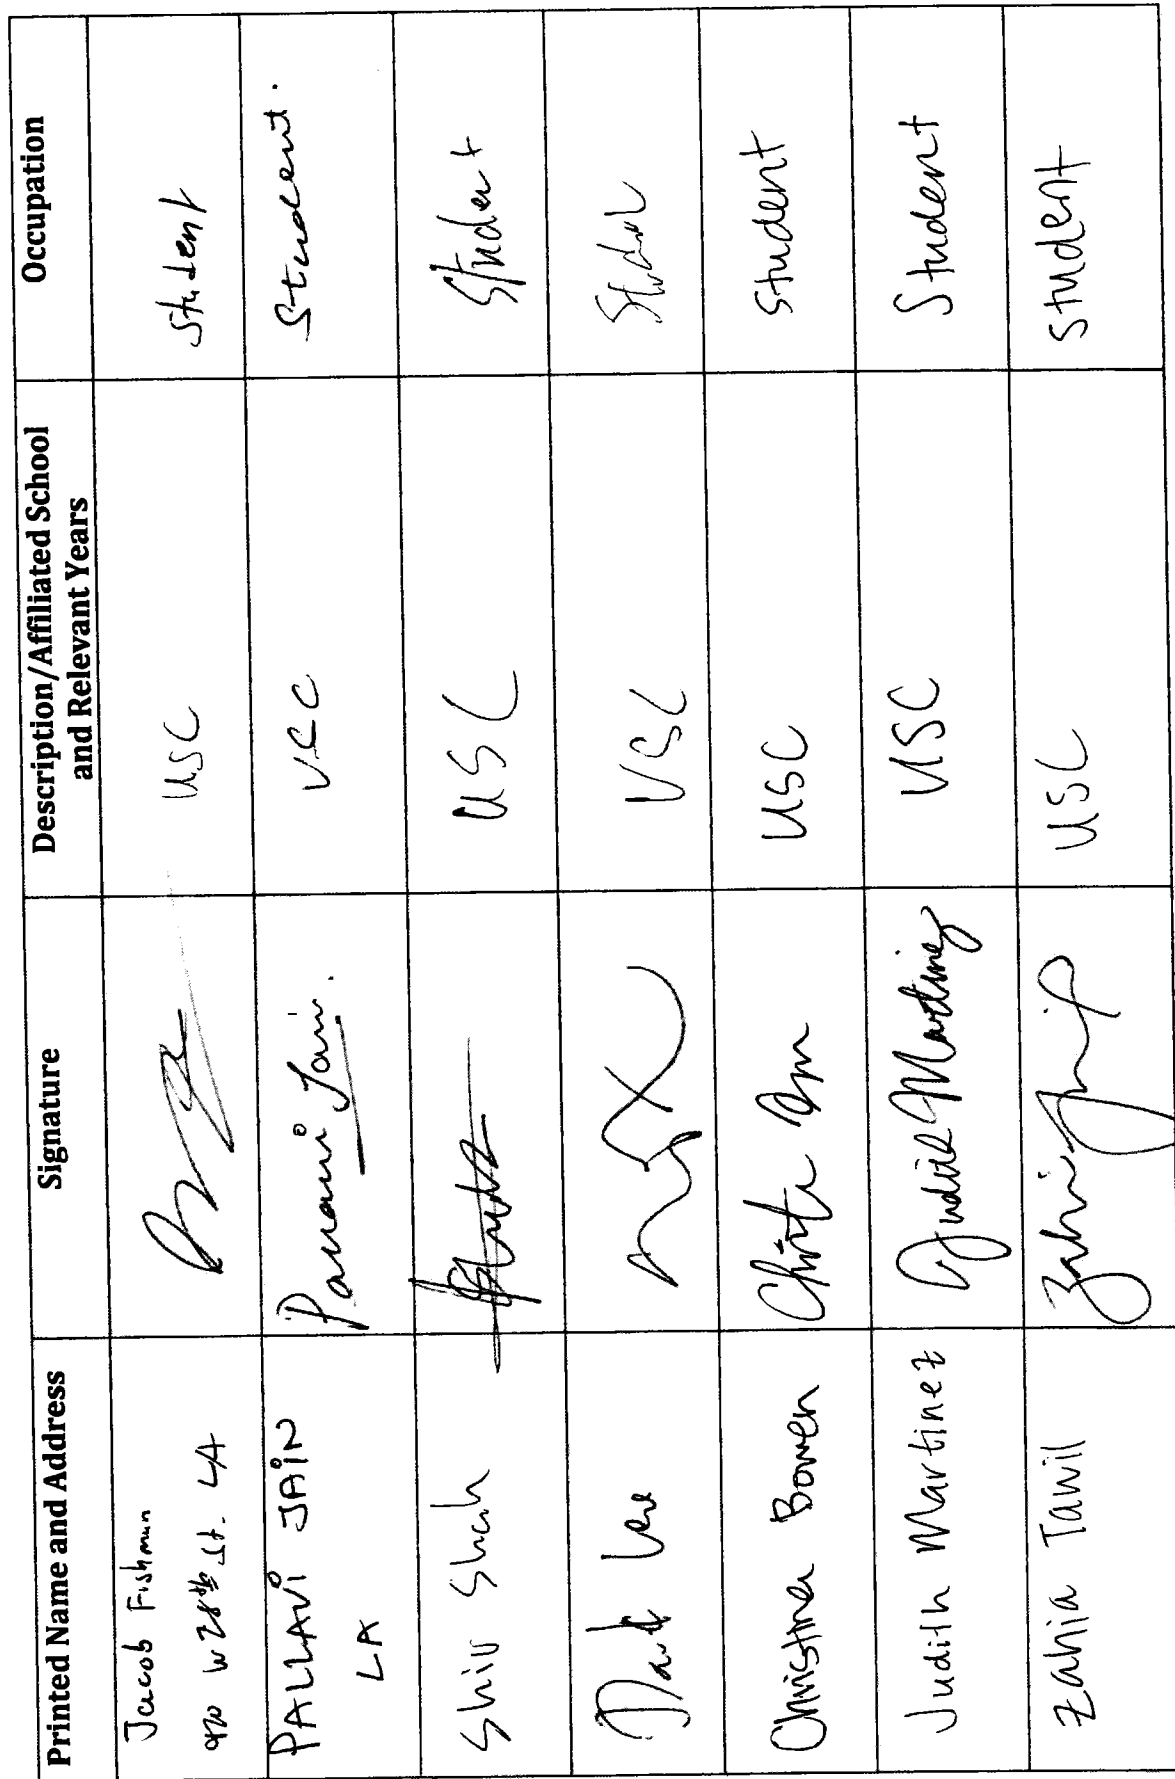 Printed Name and Address Signature Description/Affiliated School and Relevant Years Occupation
Jacob Fishman
W 28th St. LA
USC Student
PALLAVI JAIN
LA
Pallavi Jain. USC Student.
Shiv Shah USC Student
David USC Student
Christina Bowen USC Student
Judith Martinez Judith Martinez USC Student
Zahia Tawil USC Student